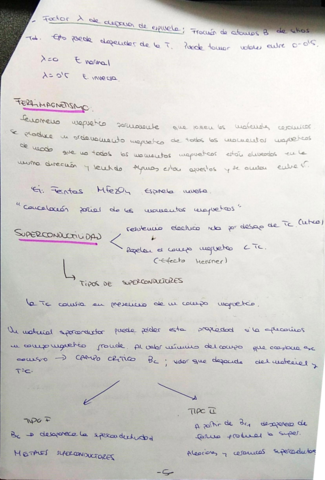 - Factor λ de ocupación de espinela: Fracción de átomos B de sitios
Td. Esto puede depender de la T. Puede tomar valores entre 0-0'5.
λ=0 E normal
λ=0'5 E inversa
FERRIMAGNETISMO
fenómeno magnético
se produce un ordenamiento magnético de todos los momentos magnéticos
de modo que no todos los momentos magnéticos están alineados en la
misma dirección y sentido. Algunos están opuestos y se anulan entre sí
Ej. Ferritas MFe2O4 espinela inversa.
"Cancelación parcial de los momentos magnéticos"
SUPERCONDUCTIVIDAD
resistencia eléctrica nula por debajo de Tc (crítica)
Repelen el campo magnético < Tc.
(Efecto Meissner)
TIPOS DE SUPERCONDUCTORES
la Tc cambia en presencia de un campo magnético.
Un material superconductor puede perder esta propiedad si le aplicamos
un campo magnético grande. Al valor mínimo del campo que
→ CAMPO CRÍTICO Bc; valor que depende del material y
TªC.
TIPO I
Bc → desaparece la superconductividad
METALES SUPERCONDUCTORES
TIPO II
A partir de Bc1, desaparece de
forma gradual la super.
Aleaciones y cerámicas superconductoras
-5-